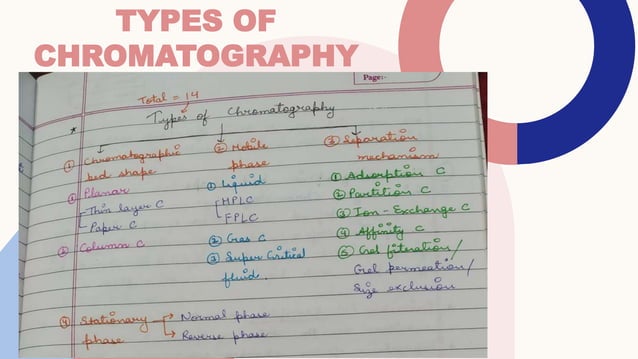 TYPES OF
CHROMATOGRAPHY
Page:-
Total = 14
* Types of Chromatography
① Chromatographic
bed shape
① Planar
Thin layer C
Paper C
② Column C
② Mobile
phase
① Liquid
HPLC
FPLC
② Gas C
③ Super Critical
fluid.
③ Separation
mechanism
① Adsorption C
② Partition C
③ Ion-Exchange C
④ Affinity C
⑤ Gel filteration/
Gel permeation/
Size exclusion
④ Stationary
phase
Normal phase
Reverse phase